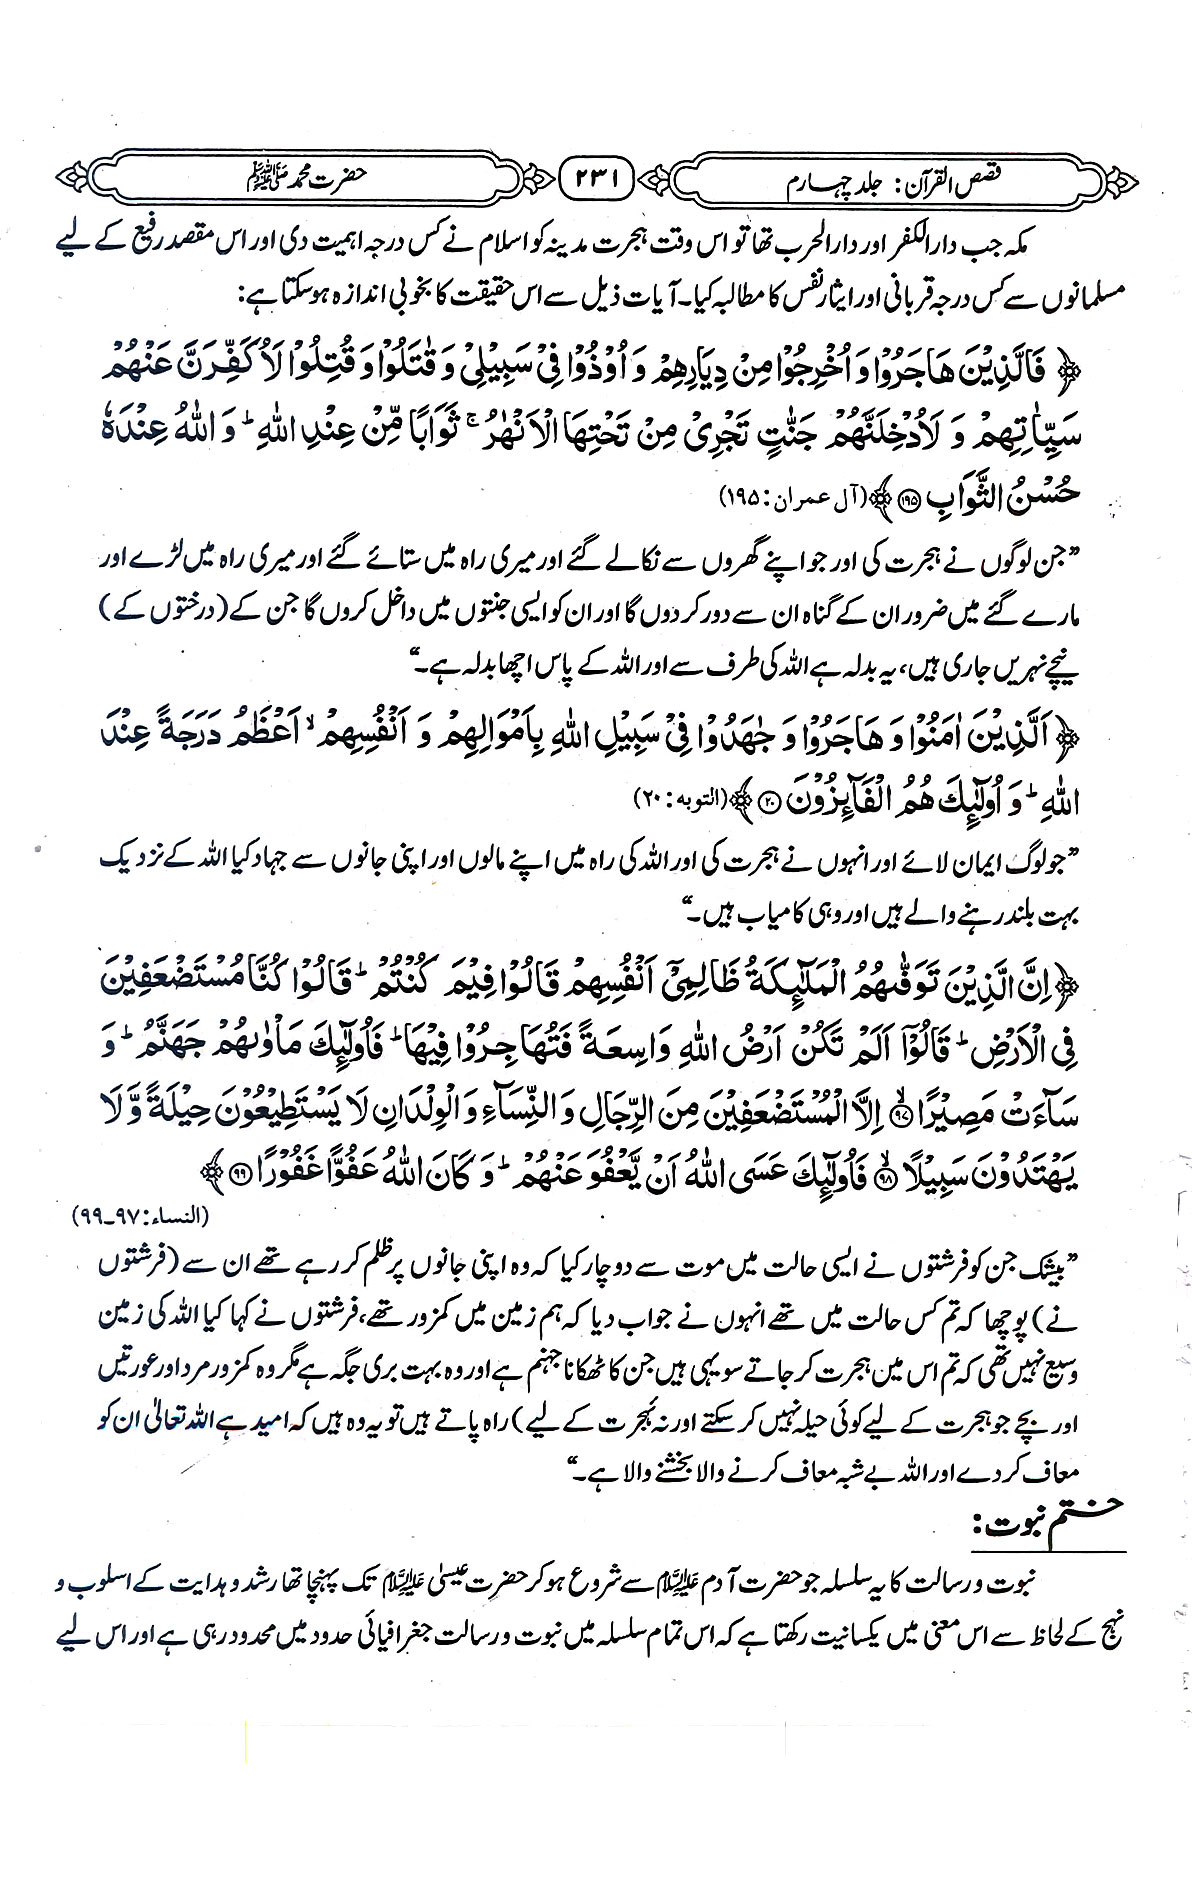 قصص القرآن: جلد چہارم ۲۳۱ حضرت محمد ﷺ
مکہ جب دارالکفر اور دارالحرب تھا تو اس وقت ہجرت مدینہ کو اسلام نے کس درجہ اہمیت دی اور اس مقصد رفیع کے لیے
مسلمانوں سے کس درجہ قربانی اور ایثار نفس کا مطالبہ کیا۔ آیات ذیل سے اس حقیقت کا بخوبی اندازہ ہوسکتا ہے:
﴿ فَالَّذِيْنَ هَاجَرُوْا وَ اُخْرِجُوْا مِنْ دِيَارِهِمْ وَ اُوْذُوْا فِيْ سَبِيْلِيْ وَ قٰتَلُوْا وَ قُتِلُوْا لَاُكَفِّرَنَّ عَنْهُمْ
سَيِّاٰتِهِمْ وَ لَاُدْخِلَنَّهُمْ جَنّٰتٍ تَجْرِيْ مِنْ تَحْتِهَا الْاَنْهٰرُ ۚ ثَوَابًا مِّنْ عِنْدِ اللّٰهِ ؕ وَ اللّٰهُ عِنْدَهٗ
حُسْنُ الثَّوَابِ ۱۹۵ ﴾ (آل عمران: ۱۹۵)
”جن لوگوں نے ہجرت کی اور جو اپنے گھروں سے نکالے گئے اور میری راہ میں ستائے گئے اور میری راہ میں لڑے اور
مارے گئے میں ضرور ان کے گناہ ان سے دور کردوں گا اور ان کو ایسی جنتوں میں داخل کروں گا جن کے (درختوں کے)
نیچے نہریں جاری ہیں، یہ بدلہ ہے اللہ کی طرف سے اور اللہ کے پاس اچھا بدلہ ہے۔“
﴿ اَلَّذِيْنَ اٰمَنُوْا وَ هَاجَرُوْا وَ جٰهَدُوْا فِيْ سَبِيْلِ اللّٰهِ بِاَمْوَالِهِمْ وَ اَنْفُسِهِمْ ۙ اَعْظَمُ دَرَجَةً عِنْدَ
اللّٰهِ ؕ وَ اُولٰٓئِكَ هُمُ الْفَآئِزُوْنَ ۲۰ ﴾ (التوبه: ۲۰)
”جو لوگ ایمان لائے اور انہوں نے ہجرت کی اور اللہ کی راہ میں اپنے مالوں اور اپنی جانوں سے جہاد کیا اللہ کے نزدیک
بہت بلند رہنے والے ہیں اور وہی کامیاب ہیں۔“
﴿ اِنَّ الَّذِيْنَ تَوَفّٰىهُمُ الْمَلٰٓئِكَةُ ظَالِمِيْٓ اَنْفُسِهِمْ قَالُوْا فِيْمَ كُنْتُمْ ؕ قَالُوْا كُنَّا مُسْتَضْعَفِيْنَ
فِي الْاَرْضِ ؕ قَالُوْٓا اَلَمْ تَكُنْ اَرْضُ اللّٰهِ وَاسِعَةً فَتُهَاجِرُوْا فِيْهَا ؕ فَاُولٰٓئِكَ مَاْوٰىهُمْ جَهَنَّمُ ؕ وَ
سَآءَتْ مَصِيْرًا ۹۷ ۙ اِلَّا الْمُسْتَضْعَفِيْنَ مِنَ الرِّجَالِ وَ النِّسَآءِ وَ الْوِلْدَانِ لَا يَسْتَطِيْعُوْنَ حِيْلَةً وَّ لَا
يَهْتَدُوْنَ سَبِيْلًا ۹۸ ۙ فَاُولٰٓئِكَ عَسَى اللّٰهُ اَنْ يَّعْفُوَ عَنْهُمْ ؕ وَ كَانَ اللّٰهُ عَفُوًّا غَفُوْرًا ۹۹ ﴾
(النساء: ۹۷-۹۹)
”بیشک جن کو فرشتوں نے ایسی حالت میں موت سے دوچار کیا کہ وہ اپنی جانوں پر ظلم کر رہے تھے ان سے (فرشتوں
نے) پوچھا کہ تم کس حالت میں تھے انہوں نے جواب دیا کہ ہم زمین میں کمزور تھے، فرشتوں نے کہا کیا اللہ کی زمین
وسیع نہیں تھی کہ تم اس میں ہجرت کر جاتے سو یہی ہیں جن کا ٹھکانا جہنم ہے اور وہ بہت بری جگہ ہے مگر وہ کمزور مرد اور عورتیں
اور بچے جو ہجرت کے لیے کوئی حیلہ نہیں کر سکتے اور نہ ہجرت کے لیے) راہ پاتے ہیں تو یہ وہ ہیں کہ امید ہے اللہ تعالیٰ ان کو
معاف کر دے اور اللہ بے شبہ معاف کرنے والا بخشنے والا ہے۔“
ختم نبوت:
نبوت و رسالت کا یہ سلسلہ جو حضرت آدم علیہ السلام سے شروع ہو کر حضرت عیسیٰ علیہ السلام تک پہنچا تھا رشد و ہدایت کے اسلوب و
نہج کے لحاظ سے اس معنی میں یکسانیت رکھتا ہے کہ اس تمام سلسلہ میں نبوت و رسالت جغرافیائی حدود میں محدود رہی ہے اور اس لیے